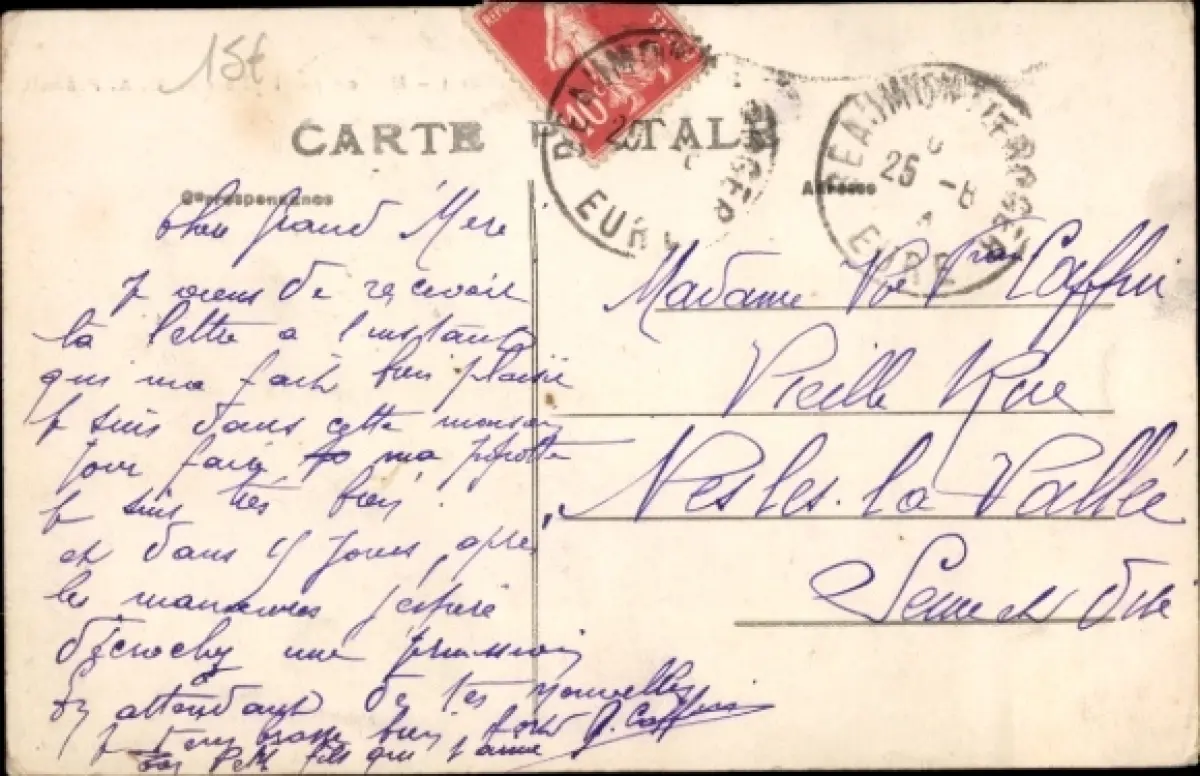 15t
CARTE POSTALE
Correspondance
Adresse
10
BEAUMONT LE ROGER
EURE
BEAUMONT LE ROGER
25 -8
EURE
Cher Grand Mère
Je viens de recevoir
ta lettre a l'instant
qui ma fait bien plaisir
je suis dans cette maison
pour faire ma popotte
je suis très bien
et dans 15 jours, après
les manoeuvres j'espère
décrocher une permission
En attendant de tes nouvelles
je t'embrasse bien fort G. Caffin
ton petit fils qui t'aime
Madame Vve Caffin
Vieille Rue
Nesles-la-Vallée
Seine et Oise